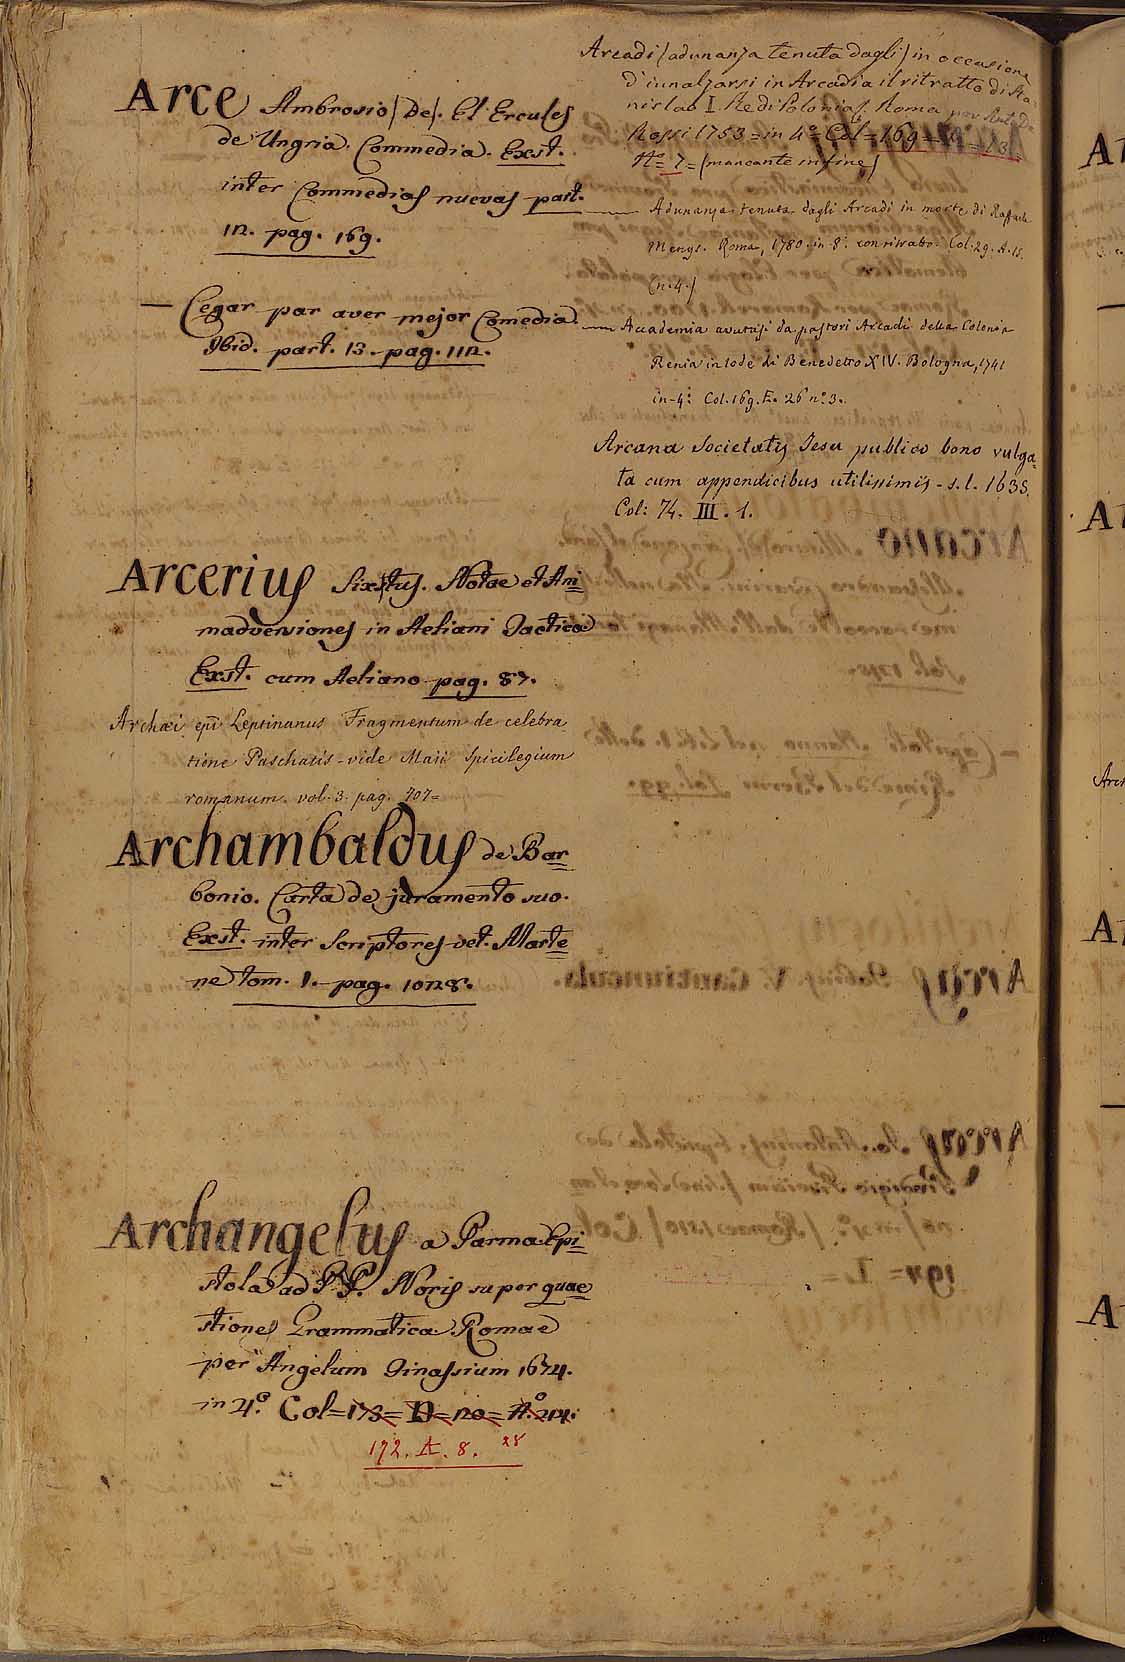 Arce Ambrosio (De). El Ercules
de Ungria. Commedia. Exst.
inter Commedias nuevas part.
12. pag. 169.
— Cegar par aver mejor Comedia.
Ibid. part. 13. pag. 112.
Arcerius Sixtus. Notae et Ani
madversiones in Aeliani Tactica
Exst. cum Aeliano pag. 87.
Archæi epi Leptinanus Fragmentum de celebra
tione Paschatis - vide Maii Spicilegium
romanum. vol. 3. pag. 707=
Archambaldus de Bar
bonio. Carta de juramento suo.
Exst. inter Scriptores vet. Marte
ne tom. 1. pag. 1028.
Archangelus a Parma Epi
stola ad P. P. Noris super quae
stiones Grammatica. Romae
per Angelum Ginassium 1674.
in 4.° Col=173= D=20= N.° 24.
172. A. 8. 28
Arcadi (adunanza tenuta dagli) in occasione
d'innalzarsi in Arcadia il ritratto di Sta=
nislao I. Re di Polonia. Roma per Ant. De
Rossi 1753=in 4.° Col=169=
N.°=7= (mancante in fine)
— Adunanza tenuta dagli Arcadi in morte di Raffaele
Mengs. Roma, 1780. in 8.° con ritratto. Col. 29. A. 15.
(n. 4.)
— Accademia avutasi da pastori Arcadi della Colonia
Renia in lode di Benedetto XIV. Bologna, 1741
in-4.° Col. 169. E. 26 n.° 3.
Arcana Societatis Jesu publico bono vulga=
ta cum appendicibus utilissimis - s.l. 1635.
Col: 74. III. 1.